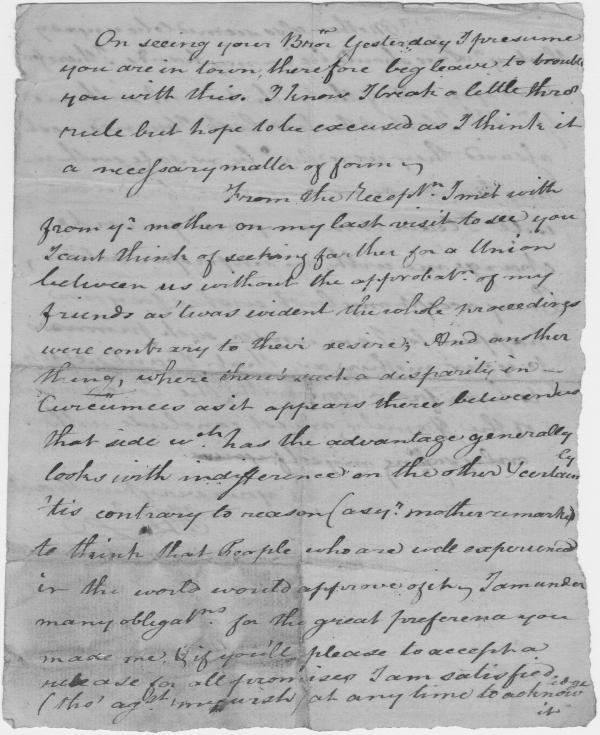 On seeing your Bror. Yesterday I presume
you are in town, therefore beg leave to trouble
you with this. I know I break a little thro'
rule but hope to be excused as I think it
a necessary matter of form
From the Receptn. I met with
from yr. mother on my last visit to see you
I cant think of seeking farther for a Union
between us without the approbatn. of my
friends as 'twas evident the whole proceedings
were contrary to their desire; And another
thing, where there's such a disparity in —
Circumces as it appears theres between us
that side wch. has the advantage generally
looks with indifference on the other & certainly
'tis contrary to reason (as yr. mother remarked)
to think that People who are well experienced
in the world would approve of it, I am under
many obligatns. for the great preferena you
made me, & if you'll please to accept a
release for all promises I am satisfied
(tho' agst. my wish) at any time to acknowledge
it